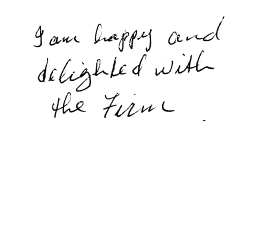 I am happy and
delighted with
the Firm.